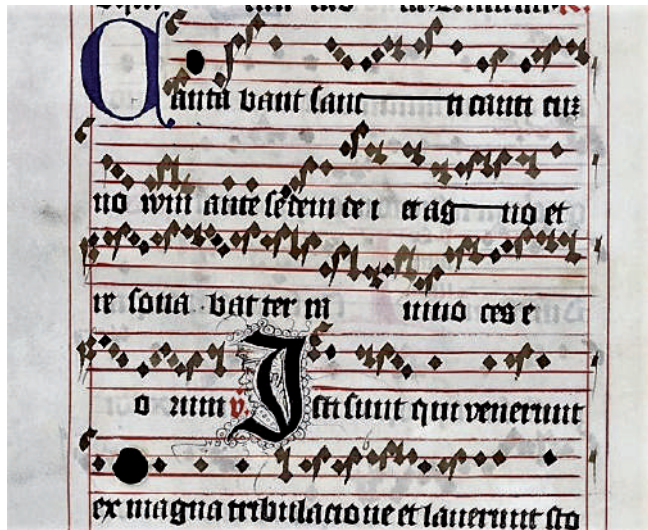 Canta bant sanc ti canti cuz
no vum ante sedem de i et ag no et
re sona bat ter ra in vo ces e
o rum v. Isti sunt qui venerunt
ex magna tribulacio ne et laverunt sto